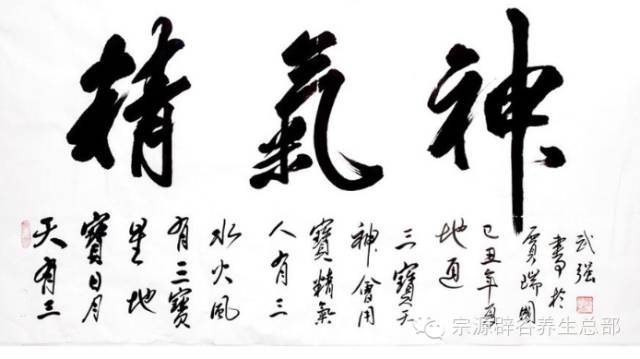 精氣神
天有三
寶日月
星地
有三寶
水火風
人有三
寶精氣
神會用
三寶天
地通
己丑年夏
賈瑞國
書於
武强
宗源辟谷养生总部